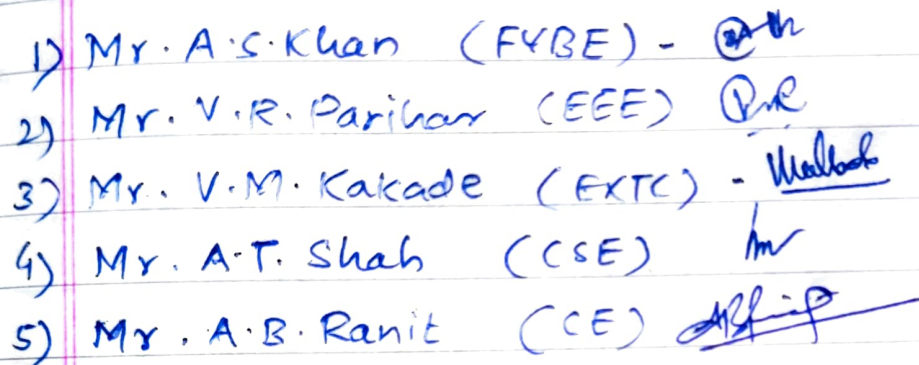 1) Mr. A.S. Khan (FYBE) -
2) Mr. V.R. Parihar (EEE)
3) Mr. V.M. Kakade (EXTC) -
4) Mr. A.T. Shah (CSE)
5) Mr. A.B. Ranit (CE)